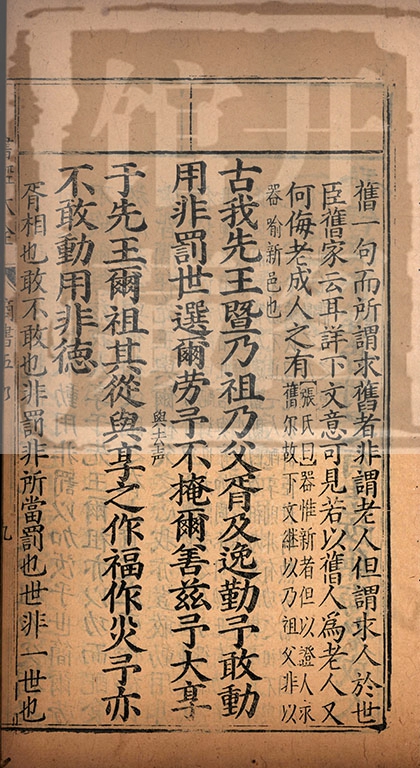 舊一句而所謂求舊者非謂老人但謂求人於世
臣舊家云耳詳下文意可見若以舊人爲老人又
何侮老成人之有【張氏曰】器惟新者但以證人求
舊尔故下文継以乃祖父非以
器喻新邑也
古我先王暨乃祖乃父胥及逸勤予敢動
用非罰世選爾劳予不掩爾善兹予大享
于先王爾祖其從與享之作福作災予亦
與去声
不敢動用非德
胥相也敢不敢也非罰非所當罰也世非一世也